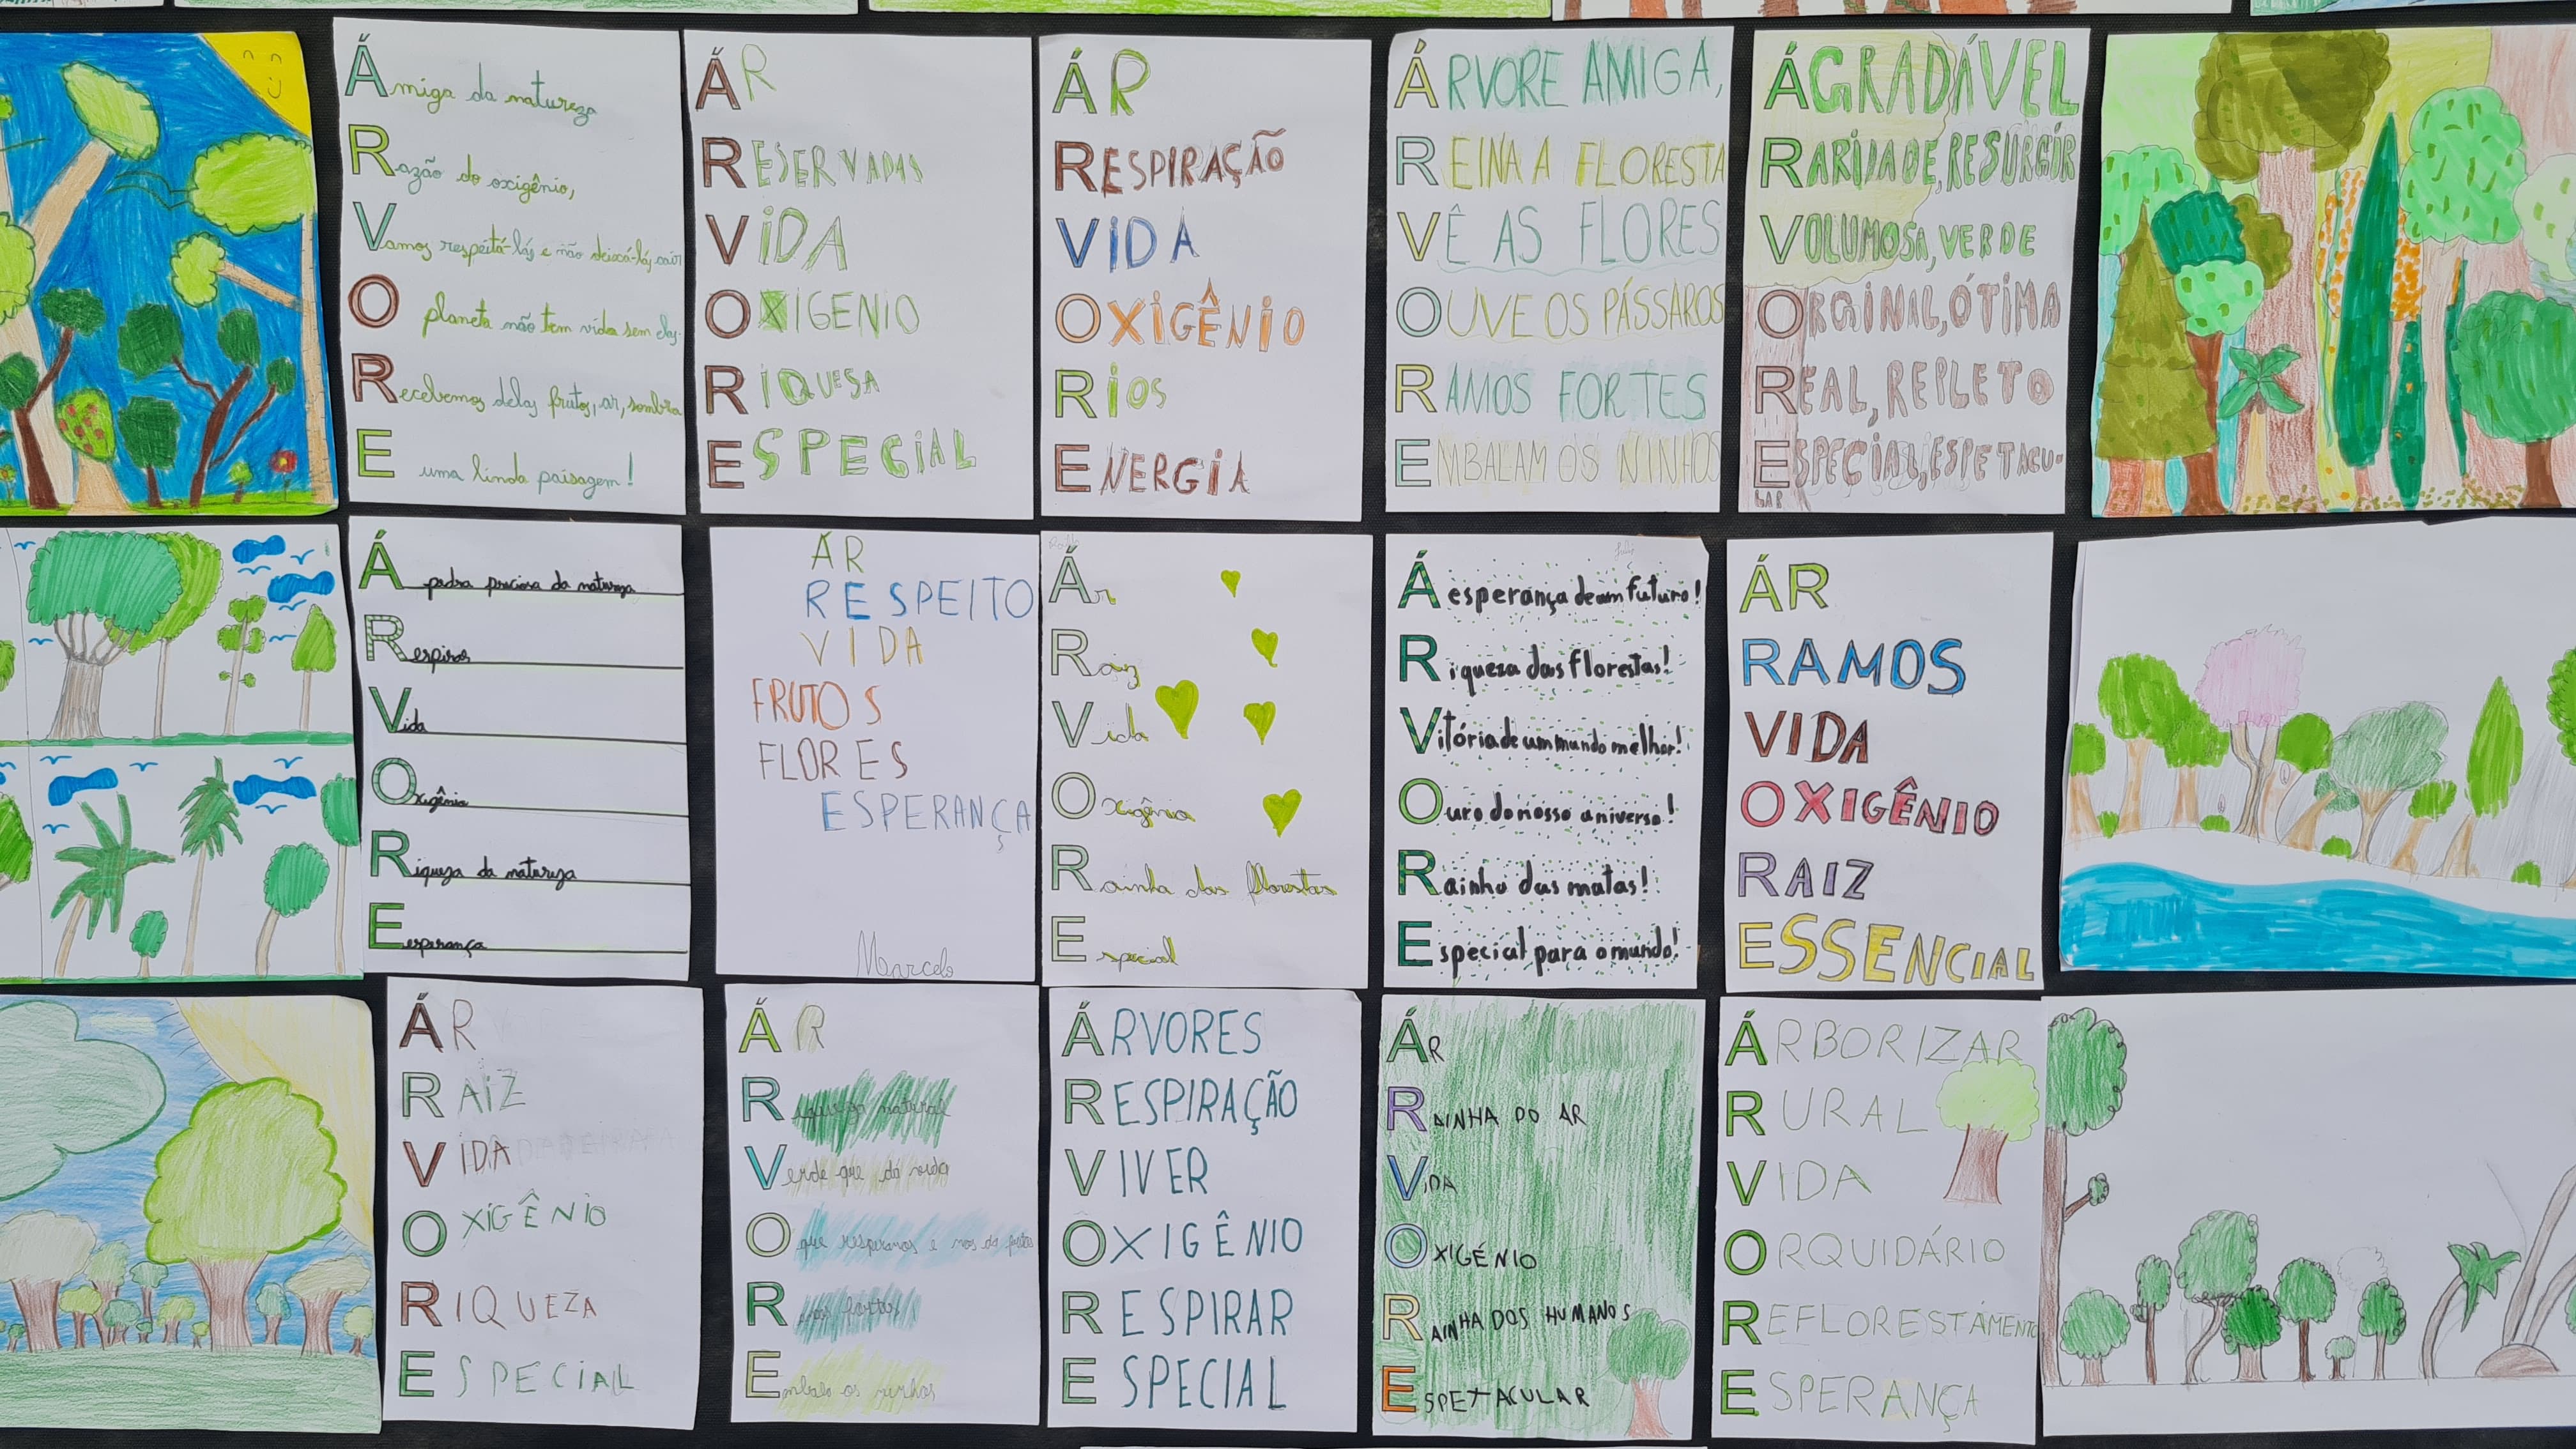 Ámiga da natureza
Razão do oxigênio,
Vamos respeitá-las e não deixá-las cair
O planeta não tem vida sem elas.
Recebemos delas frutos, ar, sombra
E uma linda paisagem!
ÁR
RESERVADAS
VIDA
OXIGENIO
RIQUESA
ESPECIAL
ÁR
RESPIRAÇÃO
VIDA
OXIGÊNIO
RIOS
ENERGIA
ÁRVORE AMIGA,
REINA A FLORESTA
VÊ AS FLORES
OUVE OS PÁSSAROS
RAMOS FORTES
EMBALAM OS NINHOS
ÁGRADÁVEL
RARIDADE, RESURGIR
VOLUMOSA, VERDE
ORGINAL, ÓTIMA
REAL, REPLETO
ESPECIAL, ESPETACU-
LAR
Á pedra preciosa da natureza
Respirar
Vida
Oxigênio
Riqueza da natureza
Esperança
ÁR
RESPEITO
VIDA
FRUTOS
FLORES
ESPERANÇA
Marcelo
Ár
Raiz
Vida
Oxigênio
Rainha das florestas
Especial
Á esperança de um futuro!
Riqueza das florestas!
Vitória de um mundo melhor!
Ouro do nosso universo!
Rainha das matas!
Especial para o mundo!
ÁR
RAMOS
VIDA
OXIGÊNIO
RAIZ
ESSENCIAL
ÁR
RAIZ
VIDA
OXIGÊNIO
RIQUEZA
ESPECIAL
ÁR
Riqueza natural
Verde que dá vida
O que respiramos e nos dá
R fortes
Embala os ninhos
ÁRVORES
RESPIRAÇÃO
VIVER
OXIGÊNIO
RESPIRAR
ESPECIAL
ÁR
RAINHA DO AR
VIDA
OXIGÉNIO
RAINHA DOS HUMANOS
ESPETACULAR
ÁRBORIZAR
RURAL
VIDA
ORQUIDÁRIO
REFLORESTÁMENTO
ESPERANÇA